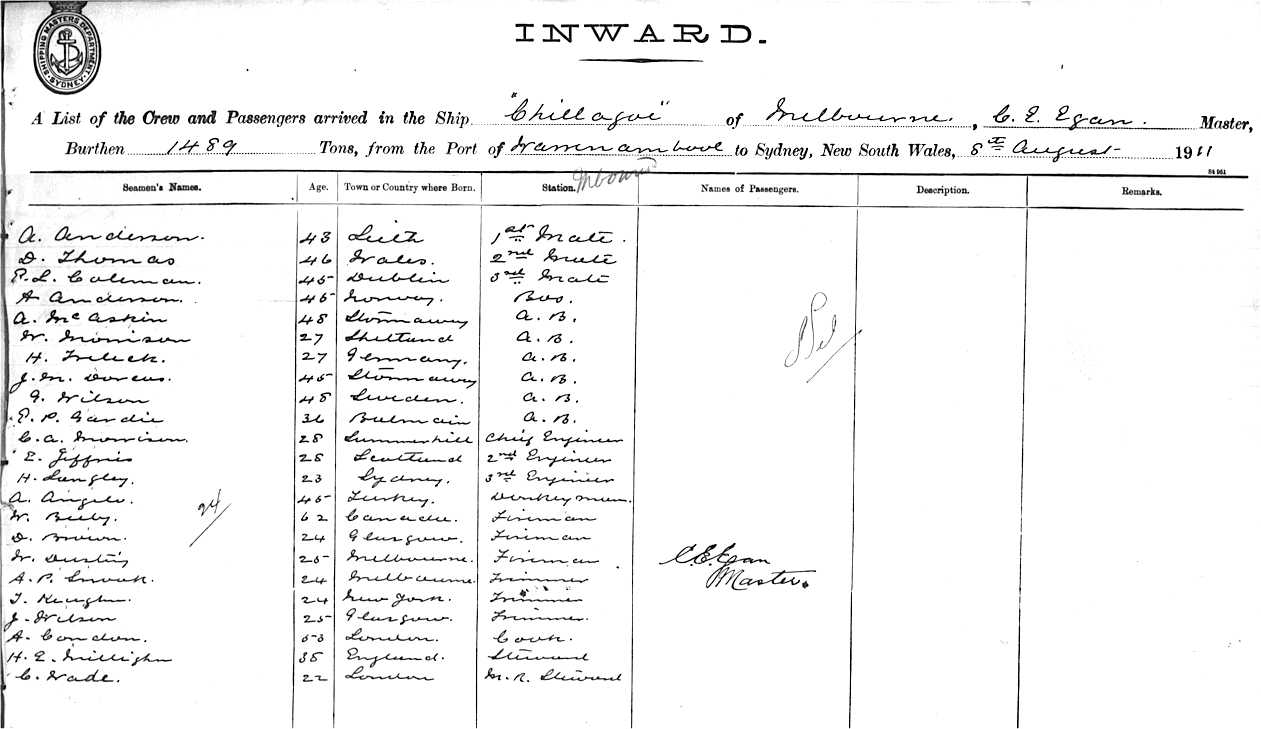 SHIPPING MASTERS DEPARTMENT SYDNEY
INWARD.
A List of the Crew and Passengers arrived in the Ship "Chillagoe" of Melbourne, C. E. Egan. Master,
Burthen 1489 Tons, from the Port of Warrnambool to Sydney, New South Wales, 8th August 1911
S4 961
Seamen's Names. Age. Town or Country where Born. Station. Names of Passengers. Description. Remarks.
A. Anderson. 43 Leith 1st Mate.
D. Thomas 46 Wales. 2nd Mate
P. L. Coleman. 45 Dublin 3rd Mate
A Anderson. 45 Norway. Bos.
A. McAskin 48 Stornaway A.B.
W. Morrison 27 Shetland A.B.
H. 27 Germany. A.B.
J. M. 45 Stornaway A.B.
G. Wilson 48 Sweden. A.B.
E. P. Gardie 36 Balmain A.B.
C. A. Morrison. 28 Summerhill Chief Engineer
E. Jeffries 28 Scotland 2nd Engineer
H. Langley. 23 Sydney. 3rd Engineer
A. Angelo. 45 Turkey. Donkeyman.
W. 62 Canada. Fireman
D. Brown. 24 Glasgow. Fireman
W. Dusting 25 Melbourne. Fireman
C.E.Egan
Master.
A. P. 24 Melbourne Trimmer
T. 24 New York. Trimmer
J. Wilson 25 Glasgow. Trimmer.
A. Condon. 53 London. Cook.
H. E. Milligan 35 England. Steward
C. Wade. 22 London M. R. Steward